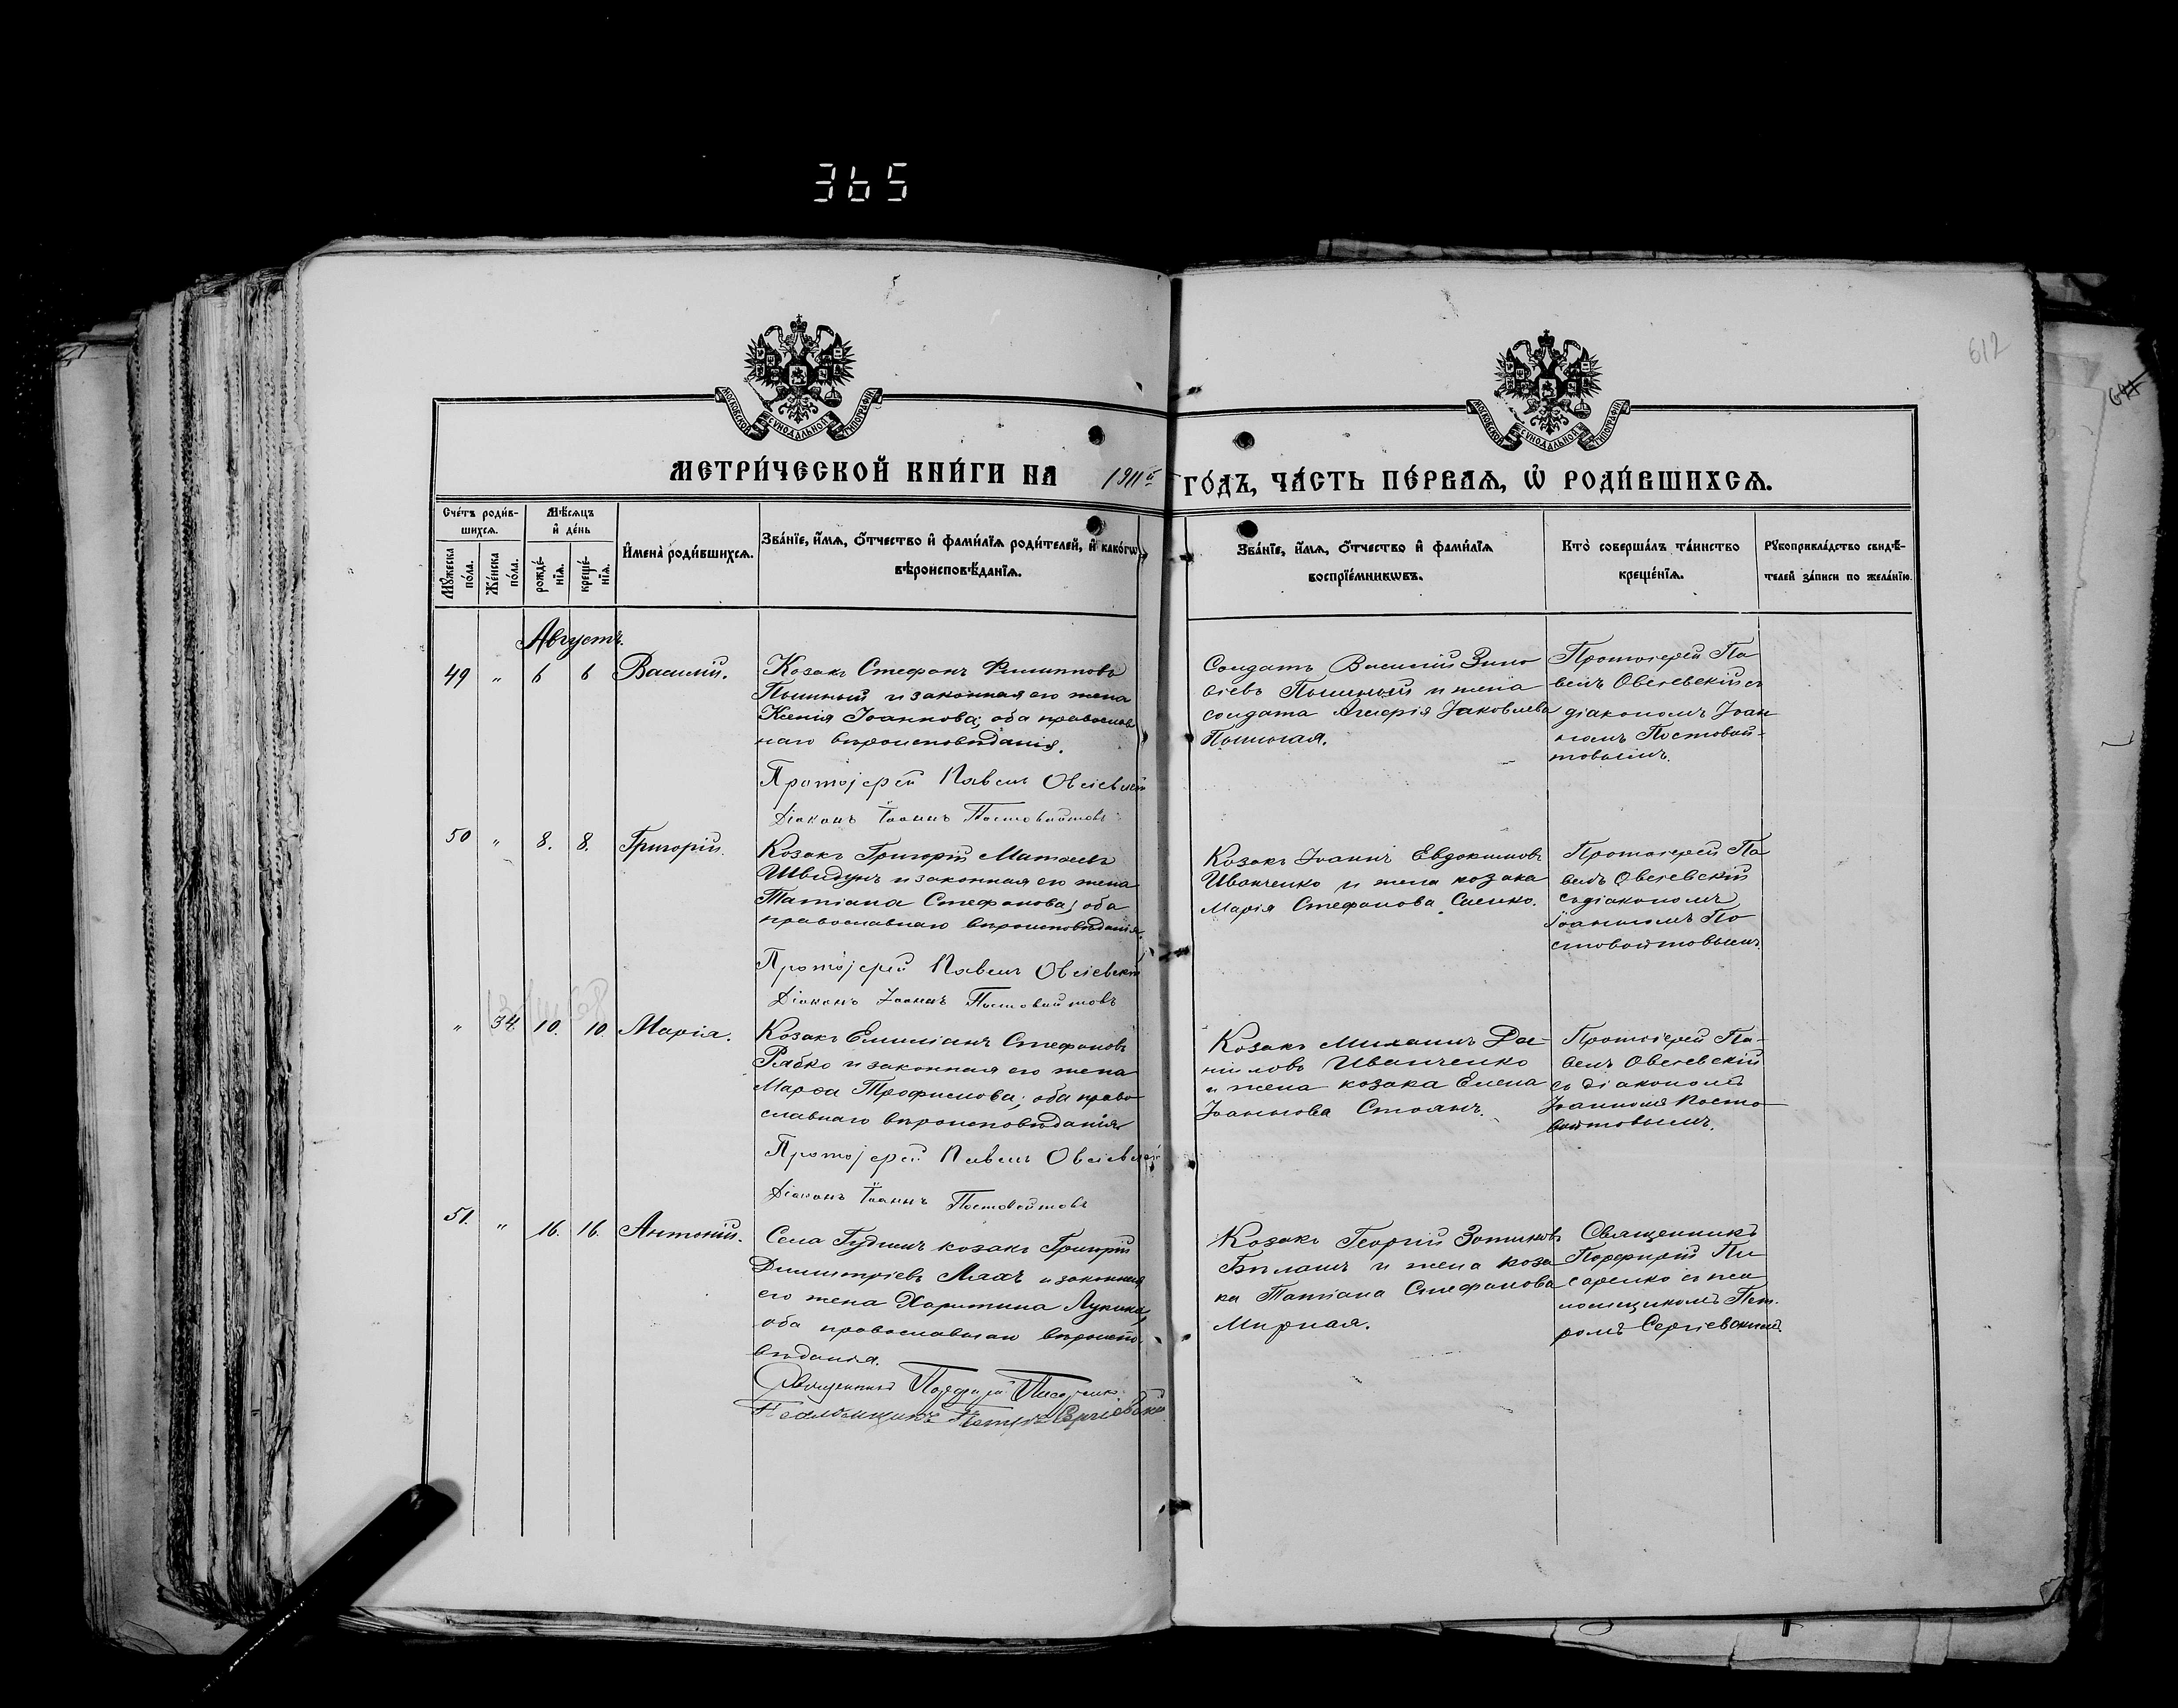 365
612
МОСКОВСКОЙ СУНОДАЛЬНОЙ ТИПОГРАФІИ
МОСКОВСКОЙ СУНОДАЛЬНОЙ ТИПОГРАФІИ
МЕТРИ́ЧЕСКОЙ КНИ́ГИ НА 1911й ГО́ДЪ, ЧА́СТЬ ПЕ́РВАѦ, Ѡ҆ РОДИ́ВШИХСѦ.
Сче́тъ роди́в-
шихсѧ.
Мꙋ́жеска по́ла.
Же́нска по́ла.
Мѣ́сѧцъ
и҆ де́нь
рожде́-
нїѧ.
креще́-
нїѧ.
И҆мена̀ роди́вшихсѧ.
Зва́нїе, и҆́мѧ, ѻ҆́тчество и҆ фами́лїѧ роди́телей, и҆ како́гѡ
вѣроисповѣ́данїѧ.
Зва́нїе, и҆́мѧ, ѻ҆́тчество и҆ фами́лїѧ
воспрїе́мникѡвъ.
Кто̀ соверша́лъ та́инство
креще́нїѧ.
Рꙋкоприкла́дство свидѣ́-
телей за́писи по жела́нїю.
Августъ.
49 " 6 6 Василій.
Козакъ Стефанъ Филипповъ
Пышный и законная его жена
Ксенія Іоаннова; оба православ
наго вѣроисповѣданія.
Протоіерей Павелъ Овсіевскій
Діаконъ Іоаннъ Постовойтовъ
Солдатъ Василій Зино
віевъ Пышный и жена
солдата Гликерія Іаковлева
Пышная.
Протоіерей Па
велъ Овсіевскій съ
діакономъ Іоан
номъ Постовой-
товымъ.
50 " 8. 8. Григорій.
Козакъ Григорій Матѳеевъ
Швидунъ и законная его жена
Татіана Стефанова; оба
православнаго вѣроисповѣданія.
Протоіерей Павелъ Овсіевскій
Діаконъ Іоаннъ Постовойтовъ
Козакъ Іоаннъ Евдокимовъ
Иванченко и жена козака
Марія Стефанова Саенко.
Протоіерей Па
велъ Овсіевскій
съ діакономъ
Іоанномъ По
стовойтовымъ
" 34. 10. 10. Марія.
Козакъ Емиліанъ Стефановъ
Рябко и законная его жена
Марѳа Трофимова; оба право
славнаго вѣроисповѣданія
Протоіерей Павелъ Овсіевскій
Діаконъ Іоаннъ Постовойтовъ
Козакъ Михаилъ Да-
ниловъ Иванченко
и жена козака Елена
Іоаннова Стоянъ.
Протоіерей Па-
велъ Овсіевскій
съ діакономъ
Іоанномъ Посто
войтовымъ.
51. " 16. 16. Антоній.
Села Гудимъ козакъ Григорій
Димитріевъ Махъ и законная
его жена Харитина Лукина,
оба православнаго вѣроиспо-
вѣданія.
Священникъ Порфирій Писаренко
Псаломщикъ Петръ Сергіевскій
Козакъ Георгій Зотиковъ
Бѣлашъ и жена коза
ка Татіана Стефанова
Мирная.
Священникъ
Порфирій Пи
саренко съ пса
ломщикомъ Пет.
ромъ Сергіевскимъ.